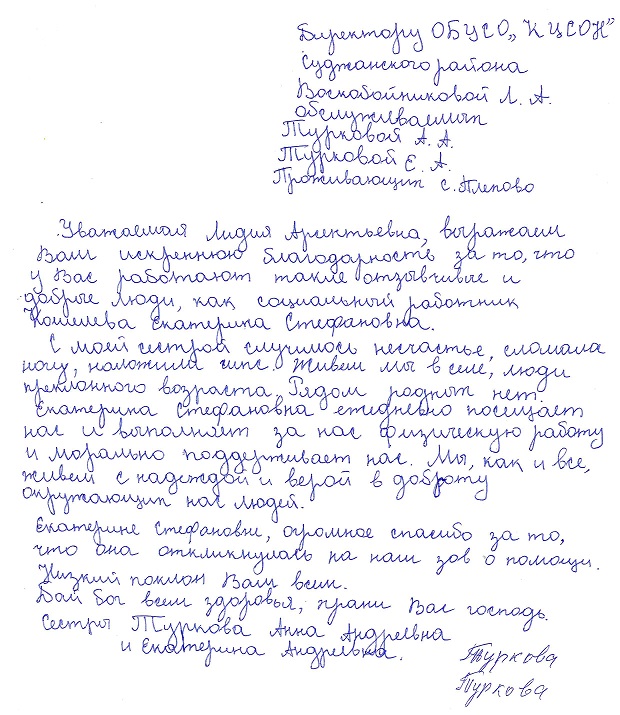 Директору ОБУСО „КЦСОН"
Суджанского района
Воскобойниковой Л. А.
обслуживаемых
Турковой А. А.
Турковой Е. А.
Проживающих с. Плехово
Уважаемая Лидия Арсентьевна, выражаем
Вам искреннюю благодарность за то, что
у Вас работают такие отзывчивые и
добрые люди, как социальный работник
Кошелева Екатерина Стефановна.
С моей сестрой случилось несчастье, сломала
ногу, наложили гипс. Живем мы в селе, люди
преклонного возраста. Рядом родных нет.
Екатерина Стефановна ежедневно посещает
нас и выполняет за нас физическую работу
и морально поддерживает нас. Мы, как и все,
живем с надеждой и верой в доброту
окружающих нас людей.
Екатерине Стефановне, огромное спасибо за то,
что она откликнулась на наш зов о помощи.
Низкий поклон Вам всем.
Дай бог всем здоровья, храни Вас господь.
Сестры Туркова Анна Андреевна
и Екатерина Андреевна.
Туркова
Туркова